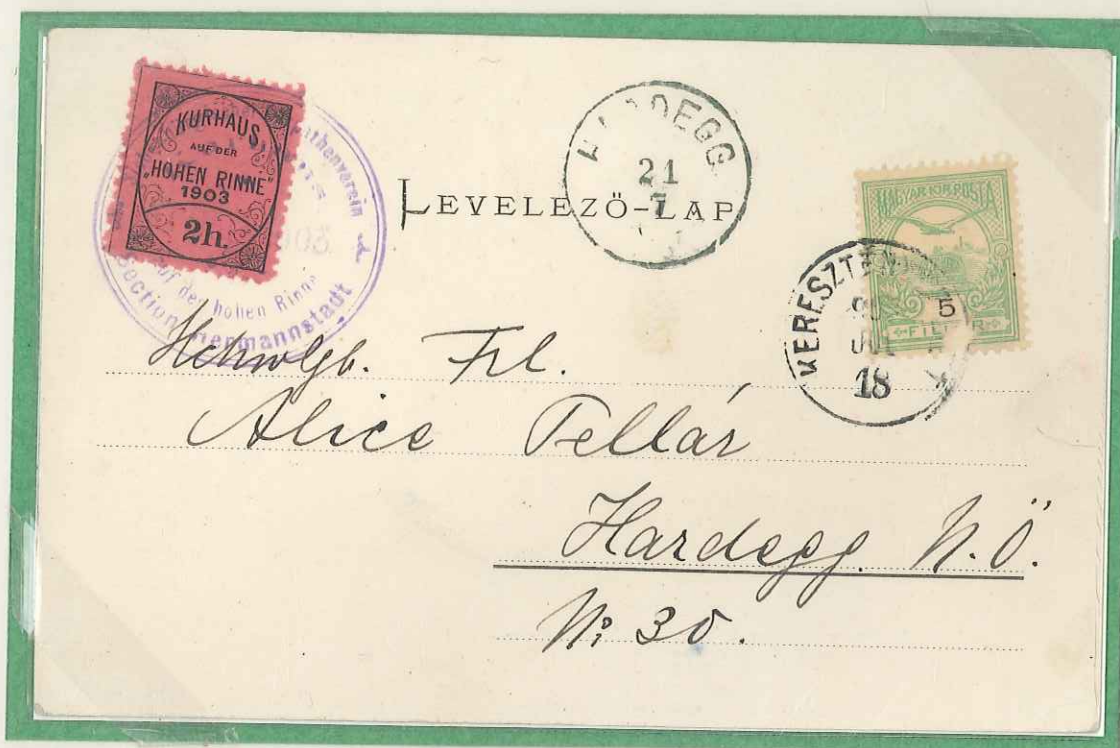 KURHAUS
AUF DER
"HOHEN RINNE"
1903
2h.
auf der hohen Rinne
Section Hermannstadt
LEVELEZŐ-LAP
21
7
MAGYAR KIR. POSTA
5
FILLÉR
18
Hchwlgb. Frl.
Alice Pellár
Hardegg. N.Ö.
Nr 30.